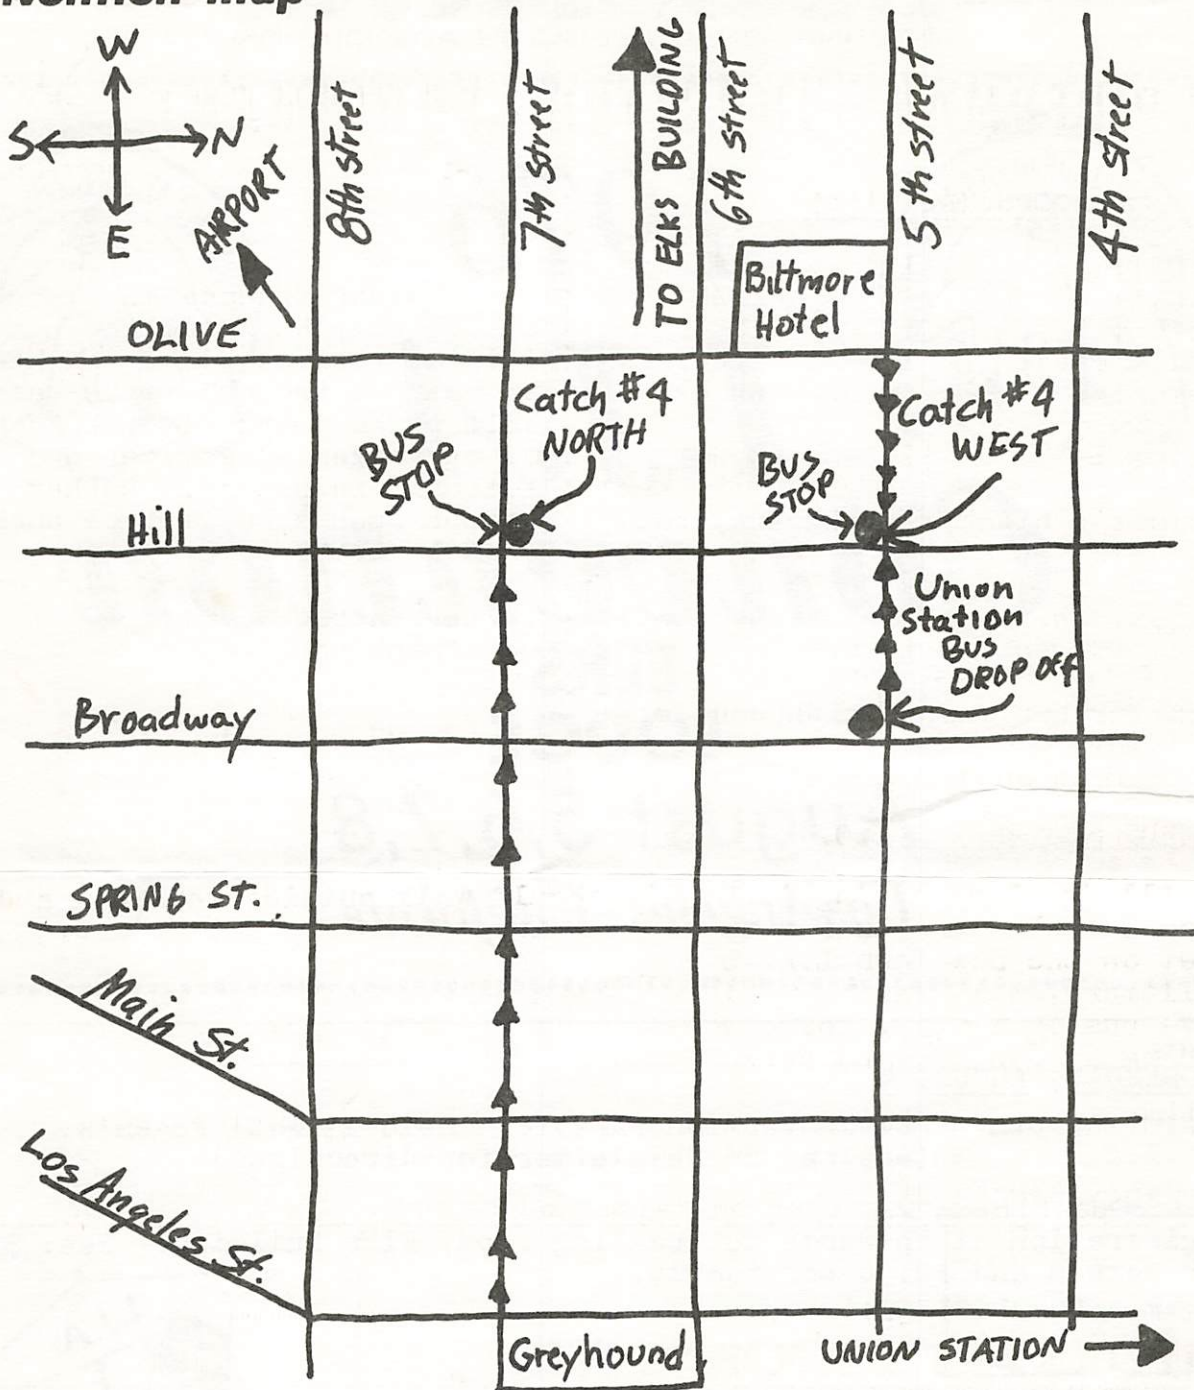 map
W
S
N
E
AIRPORT
8th street
7th street
TO ELKS BUILDING
6th street
5th street
4th street
Biltmore
Hotel
OLIVE
Catch #4
NORTH
BUS
STOP
Catch #4
WEST
BUS
STOP
Hill
Union
Station
BUS
DROP Off
Broadway
SPRING ST.
Main St.
Los Angeles St.
Greyhound
UNION STATION